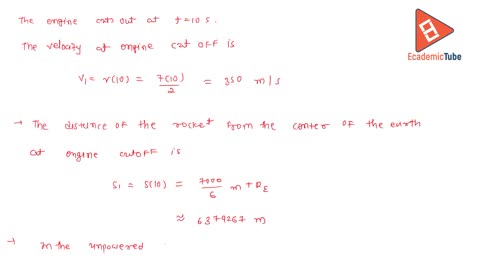 The engine cuts out at t=10 s.
The velocity at engine cut off is
V₁ = v(10) = 7(10)/2 = 350 m/s
→ The distance of the rocket from the center of the earth
at engine cutoff is
S₁ = S(10) = 7000/6 m + RE
≈ 6379267 m
→ In the unpowered
EcademicTube